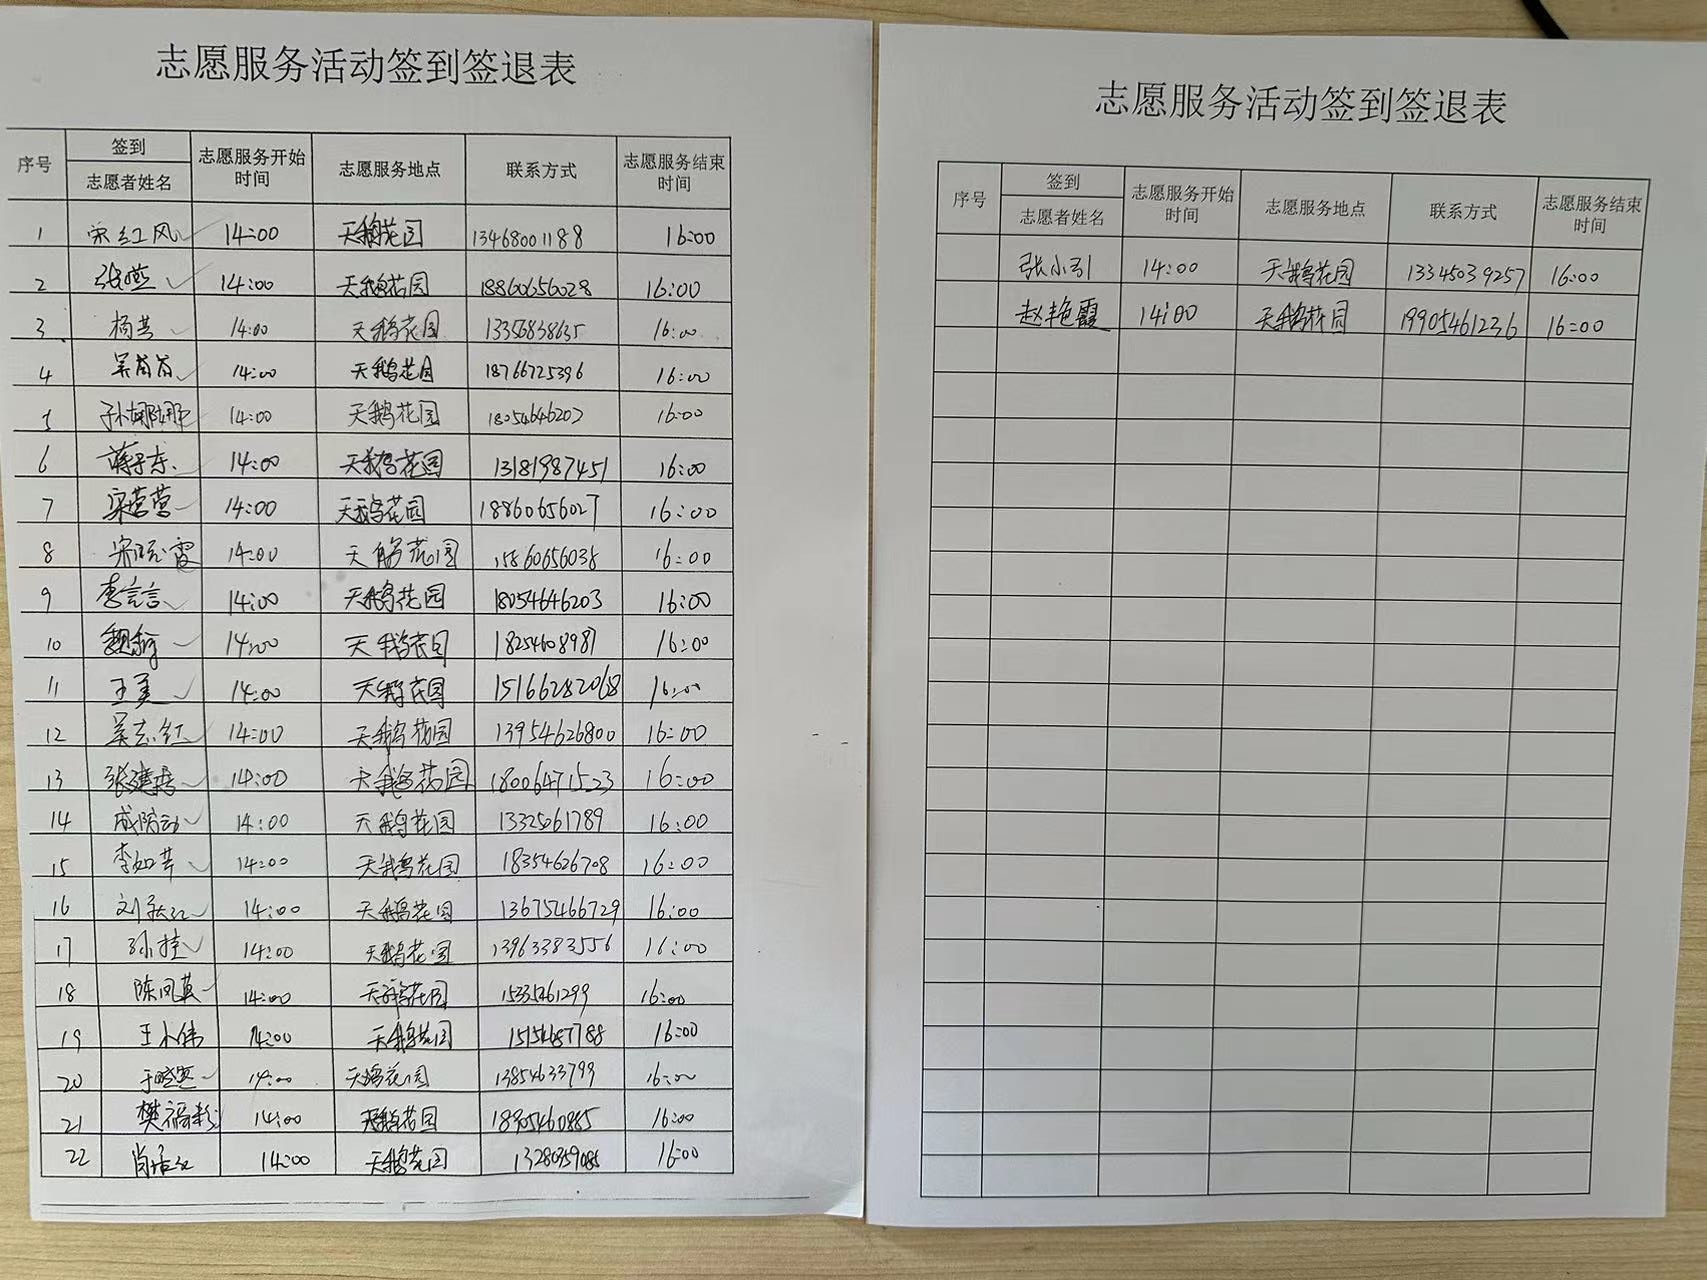 志愿服务活动签到签退表
序号 签到 志愿者姓名 志愿服务开始时间 志愿服务地点 联系方式 志愿服务结束时间
1 宋红风 14:00 天鹅花园 13468001188 16:00
2 张燕 14:00 天鹅花园 18860656028 16:00
3 杨芸 14:00 天鹅花园 13356838635 16:00
4 14:00 天鹅花园 18766725396 16:00
5 孙娜娜 14:00 天鹅花园 16:00
6 14:00 天鹅花园 13181987451 16:00
7 宋营营 14:00 天鹅花园 18860656027 16:00
8 宋晓霞 14:00 天鹅花园 15860656038 16:00
9 李言言 14:00 天鹅花园 18054646203 16:00
10 14:00 天鹅花园 18254608987 16:00
11 王美 14:00 天鹅花园 15166282068 16:00
12 吴志红 14:00 天鹅花园 13954626800 16:00
13 14:00 天鹅花园 18006471523 16:00
14 14:00 天鹅花园 16:00
15 李如芹 14:00 天鹅花园 18354626708 16:00
16 14:00 天鹅花园 13675466729 16:00
17 孙桂 14:00 天鹅花园 13963383556 16:00
18 陈凤英 14:00 天鹅花园 15335461299 16:00
19 王小伟 14:00 天鹅花园 16:00
20 14:00 天鹅花园 13854633799 16:00
21 樊福彩 14:00 天鹅花园 18905460885 16:00
22 14:00 天鹅花园 16:00
志愿服务活动签到签退表
序号 签到 志愿者姓名 志愿服务开始时间 志愿服务地点 联系方式 志愿服务结束时间
张小引 14:00 天鹅花园 13345039257 16:00
赵艳霞 14:00 天鹅花园 19905461236 16:00